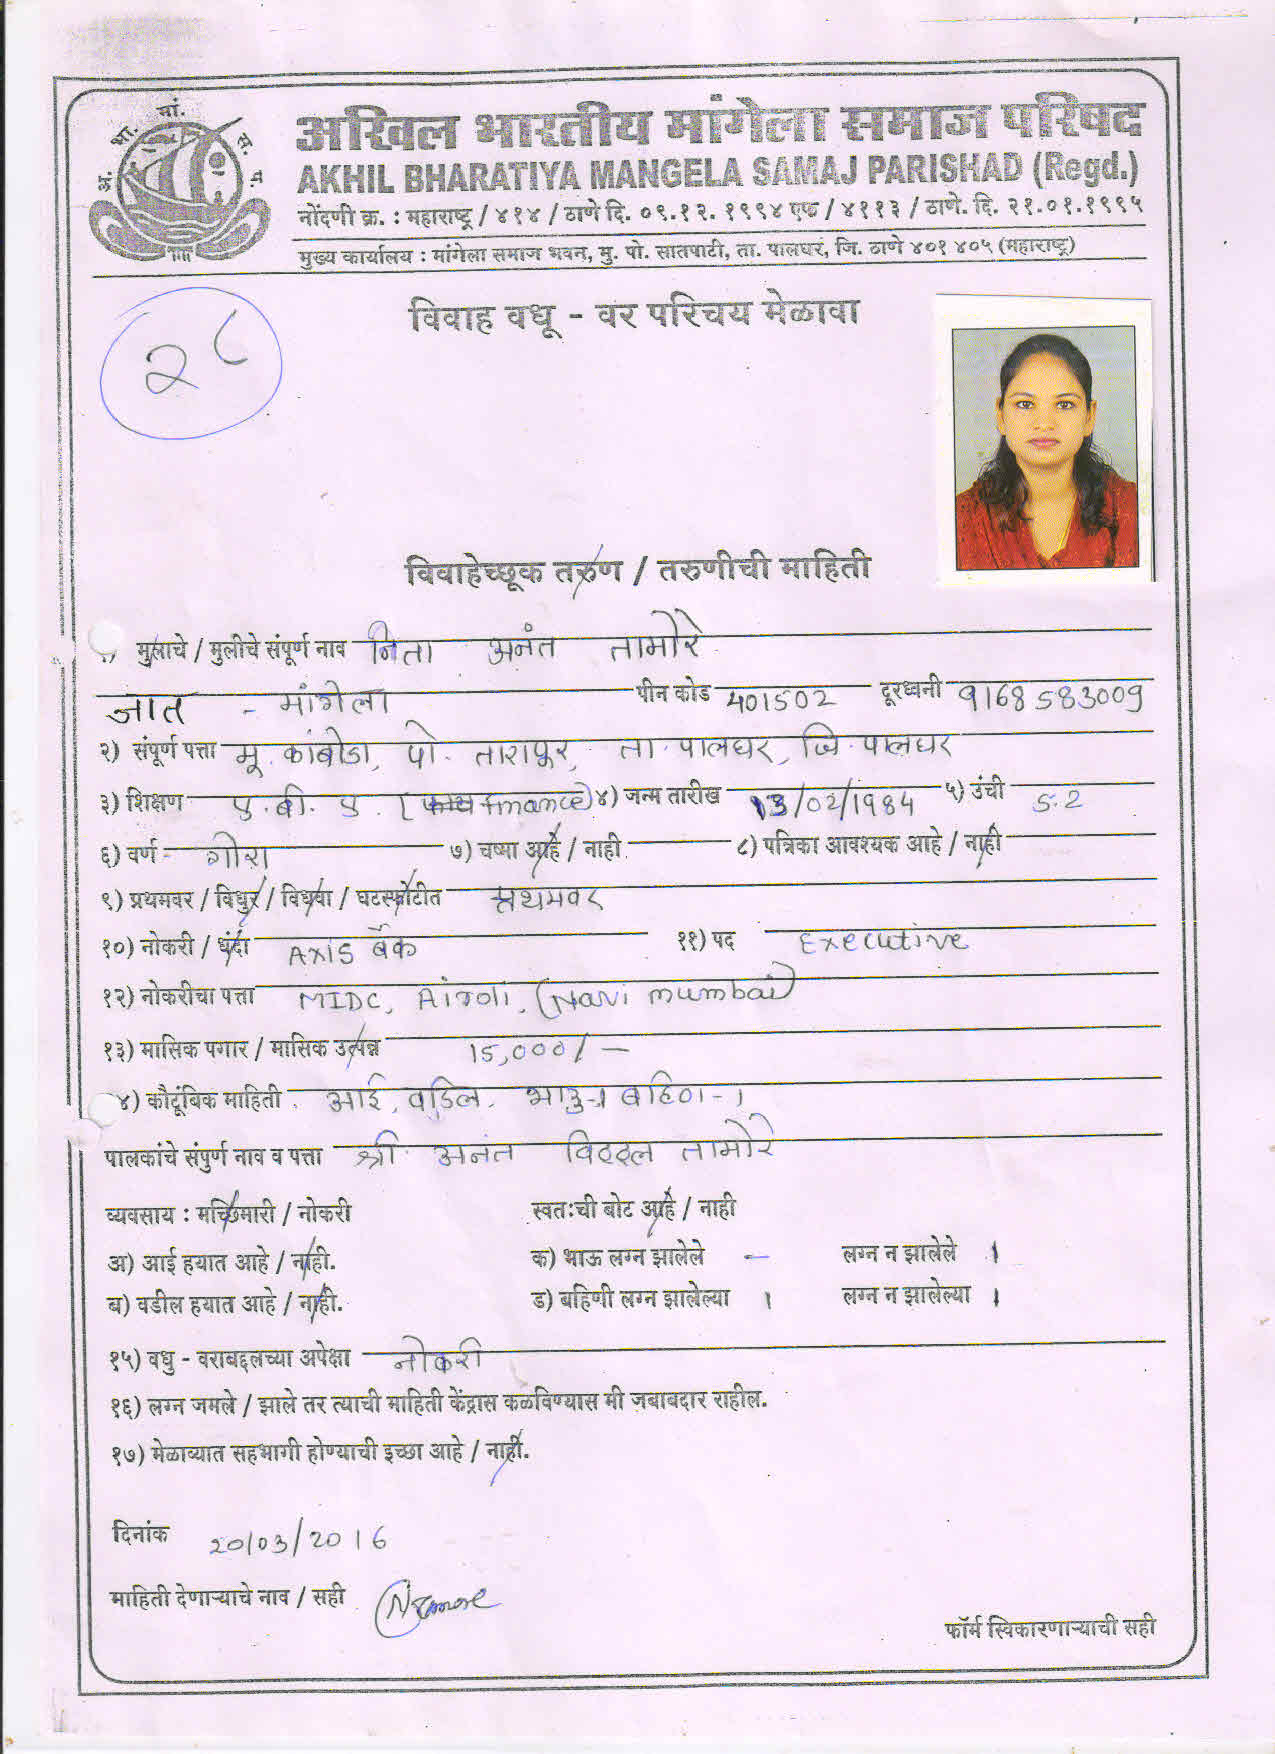 अ. भा. मां. स. प.
अखिल भारतीय मांगेला समाज परिषद
AKHIL BHARATIYA MANGELA SAMAJ PARISHAD (Regd.)
नोंदणी क्र. : महाराष्ट्र / ४१४ / ठाणे दि. ०९.१२. १९९४ एफ / ४११३ / ठाणे. दि. २१.०१.१९९५
मुख्य कार्यालय : मांगेला समाज भवन, मु. पो. सातपाटी, ता. पालघर, जि. ठाणे ४०१ ४०५ (महाराष्ट्र)
२८
विवाह वधू - वर परिचय मेळावा
विवाहेच्छूक तरुण / तरुणीची माहिती
मुलाचे / मुलीचे संपूर्ण नाव निता अनंत तामोरे
जात - मांगेला पीन कोड 401502 दूरध्वनी 9168583009
२) संपूर्ण पत्ता मू. कांबोडा, पो. तारापूर, ता. पालघर, जि. पालघर
३) शिक्षण एम.बी. ए. (finance) ४) जन्म तारीख 13/02/1984 ५) उंची 5.2
६) वर्ण - गोरा ७) चष्मा आहे / नाही ८) पत्रिका आवश्यक आहे / नाही
९) प्रथमवर / विधुर / विधवा / घटस्फोटीत प्रथमवर
१०) नोकरी / धंदा AXIS बँक ११) पद Executive
१२) नोकरीचा पत्ता MIDC, Airoli, (Navi mumbai)
१३) मासिक पगार / मासिक उत्पन्न 15,000/-
४) कौटूंबिक माहिती . आई, वडिल, भाऊ-१ बहिण-१
पालकांचे संपुर्ण नाव व पत्ता श्री. अनंत विठ्ठल तामोरे
व्यवसाय : मच्छिमारी / नोकरी स्वतःची बोट आहे / नाही
अ) आई हयात आहे / नाही. क) भाऊ लग्न झालेले - लग्न न झालेले १
ब) वडील हयात आहे / नाही. ड) बहिणी लग्न झालेल्या १ लग्न न झालेल्या १
१५) वधु - वराबद्दलच्या अपेक्षा नोकरी
१६) लग्न जमले / झाले तर त्याची माहिती केंद्रास कळविण्यास मी जबाबदार राहील.
१७) मेळाव्यात सहभागी होण्याची इच्छा आहे / नाही.
दिनांक 20/03/2016
माहिती देणाऱ्याचे नाव / सही
फॉर्म स्विकारणाऱ्याची सही